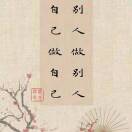 别人做别人
自己做自己